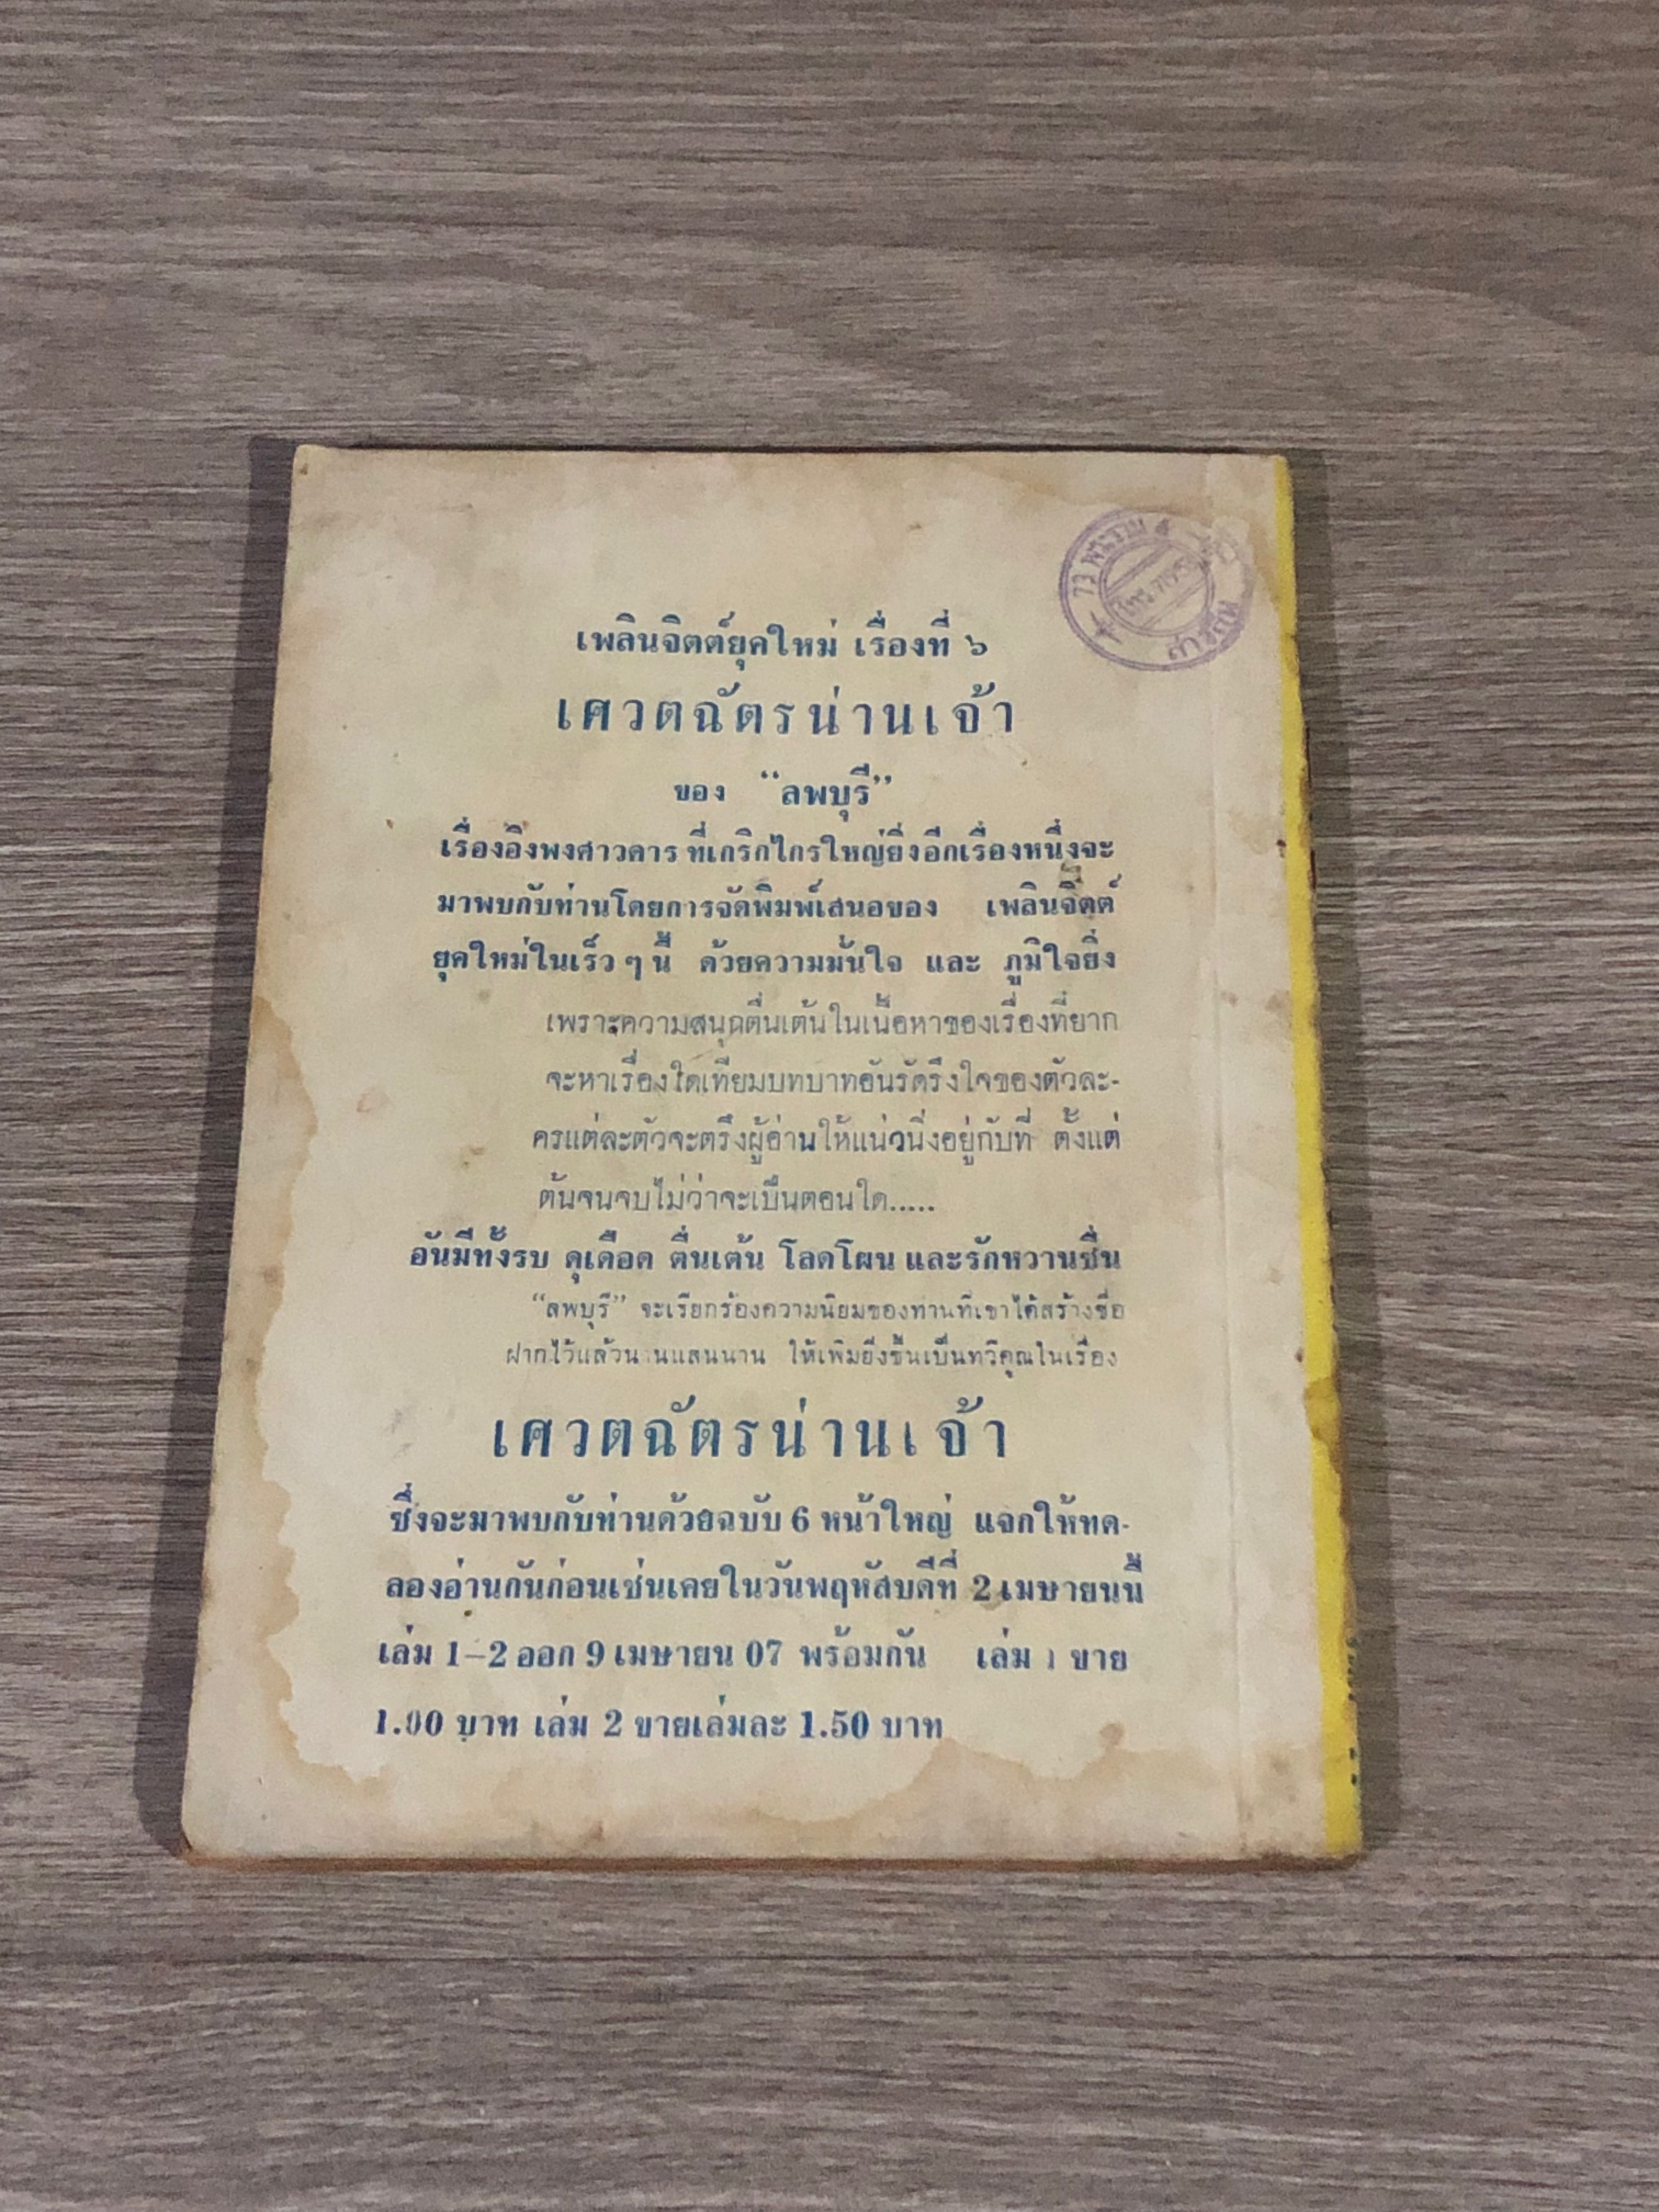 ๖๖ พระราม ๔
เพลินจิตต์ยุคใหม่ เรื่องที่ ๖
เศวตฉัตรน่านเจ้า
ของ “ลพบุรี”
เรื่องอิงพงศาวดาร ที่เกริกไกรใหญ่ยิ่งอีกเรื่องหนึ่งจะ
มาพบกับท่านโดยการจัดพิมพ์เสนอของ เพลินจิตต์
ยุคใหม่ในเร็ว ๆ นี้ ด้วยความมั่นใจ และ ภูมิใจยิ่ง
เพราะความสนุกตื่นเต้นในเนื้อหาของเรื่องที่ยาก
จะหาเรื่องใดเทียมบทบาทอันรัดรึงใจของตัวละ-
ครแต่ละตัวจะตรึงผู้อ่านให้แน่วนิ่งอยู่กับที่ ตั้งแต่
ต้นจนจบไม่ว่าจะเป็นตอนใด.....
อันมีทั้งรบ ดุเดือด ตื่นเต้น โลดโผน และรักหวานชื่น
“ลพบุรี” จะเรียกร้องความนิยมของท่านที่เขาได้สร้างชื่อ
ฝากไว้แล้วนานแสนนาน ให้เพิ่มยิ่งขึ้นเป็นทวีคูณในเรื่อง
เศวตฉัตรน่านเจ้า
ซึ่งจะมาพบกับท่านด้วยฉบับ 6 หน้าใหญ่ แจกให้ทด-
ลองอ่านกันก่อนเช่นเคยในวันพฤหัสบดีที่ 2 เมษายนนี้
เล่ม 1-2 ออก 9 เมษายน 07 พร้อมกัน เล่ม 1 ขาย
1.00 บาท เล่ม 2 ขายเล่มละ 1.50 บาท